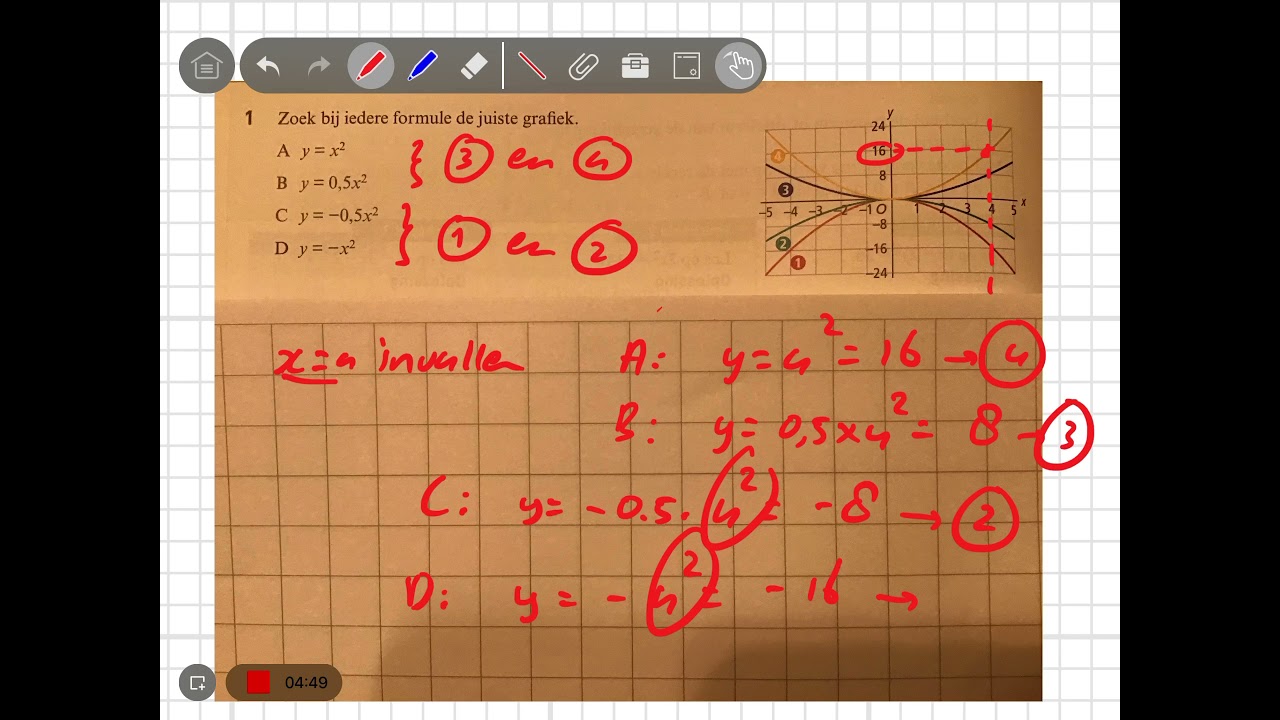 1 Zoek bij iedere formule de juiste grafiek.
A y = x²
B y = 0,5x²
C y = −0,5x²
D y = −x²
} ③ en ④
} ① en ②
y
24
16
8
−5 −4 −3 −2 −1 O 1 2 3 4 5 x
−8
−16
−24
4
3
2
1
x=4 invullen
A: y = 4² = 16 → ④
B: y = 0,5 × 4² = 8 → ③
C: y = -0.5 · 4² = -8 → ②
D: y = - 4² = -16 →
04:49